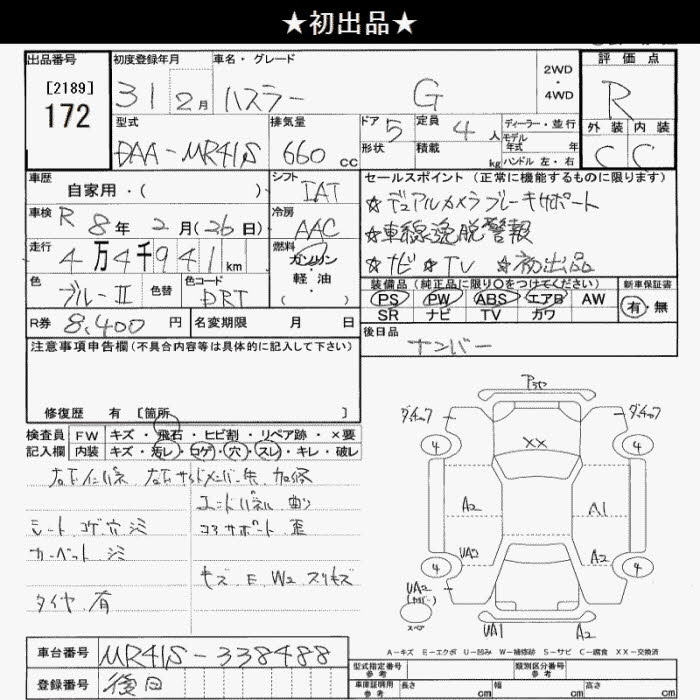 ★初出品★
出品番号 初度登録年月 車名・グレード 2WD・4WD 評価点
[2189]
172
31 2月 ハスラー G R
型式 排気量 ドア 定員 ディーラー・並行
DAA-MR41S 660cc 5 4人 モデル年式 年
形状 積載 kg ハンドル 左・右
外装 内装
C C
車歴 自家用・( ) シフト IAT
セールスポイント (正常に機能するものに限ります)
車検 R8年2月(26日) 冷房 AAC
☆デュアルカメラブレーキサポート
☆車線逸脱警報
☆ナビ ☆TV ☆初出品
走行 4万4千941km 燃料 ガソリン 軽油 ( )
色 ブルーⅡ 色替 色コード
装備品 (純正品に限り○をつけてください) 新車保証書
PS PW ABS エアB AW 有・無
SR ナビ TV カワ
R券 8,400円 名変期限 月 日
後日品 ナンバー
注意事項申告欄 (不具合内容等は具体的に記入して下さい)
修復歴 有 [箇所 ]
検査員記入欄
FW キズ・飛石・ヒビ割・リペア跡・×要
内装 キズ・汚レ・コゲ・穴・スレ・キレ・破レ
シート コゲ穴 シミ
コアサポート 歪
カーペット シミ
キズ E W2 スリキズ
タイヤ 有
XX
4 4
A2 A1
UA2 A2
4 4
UA2
スペア
UA1 A2
A-キズ E-エクボ U-凹み W-補修跡 S-サビ C-腐食 XX-交換済
車台番号 MR41S-338488
登録番号 後日
型式指定番号 参考 類別区分番号 参考
車庫証明用 参考 長さ cm 幅 cm 高さ cm